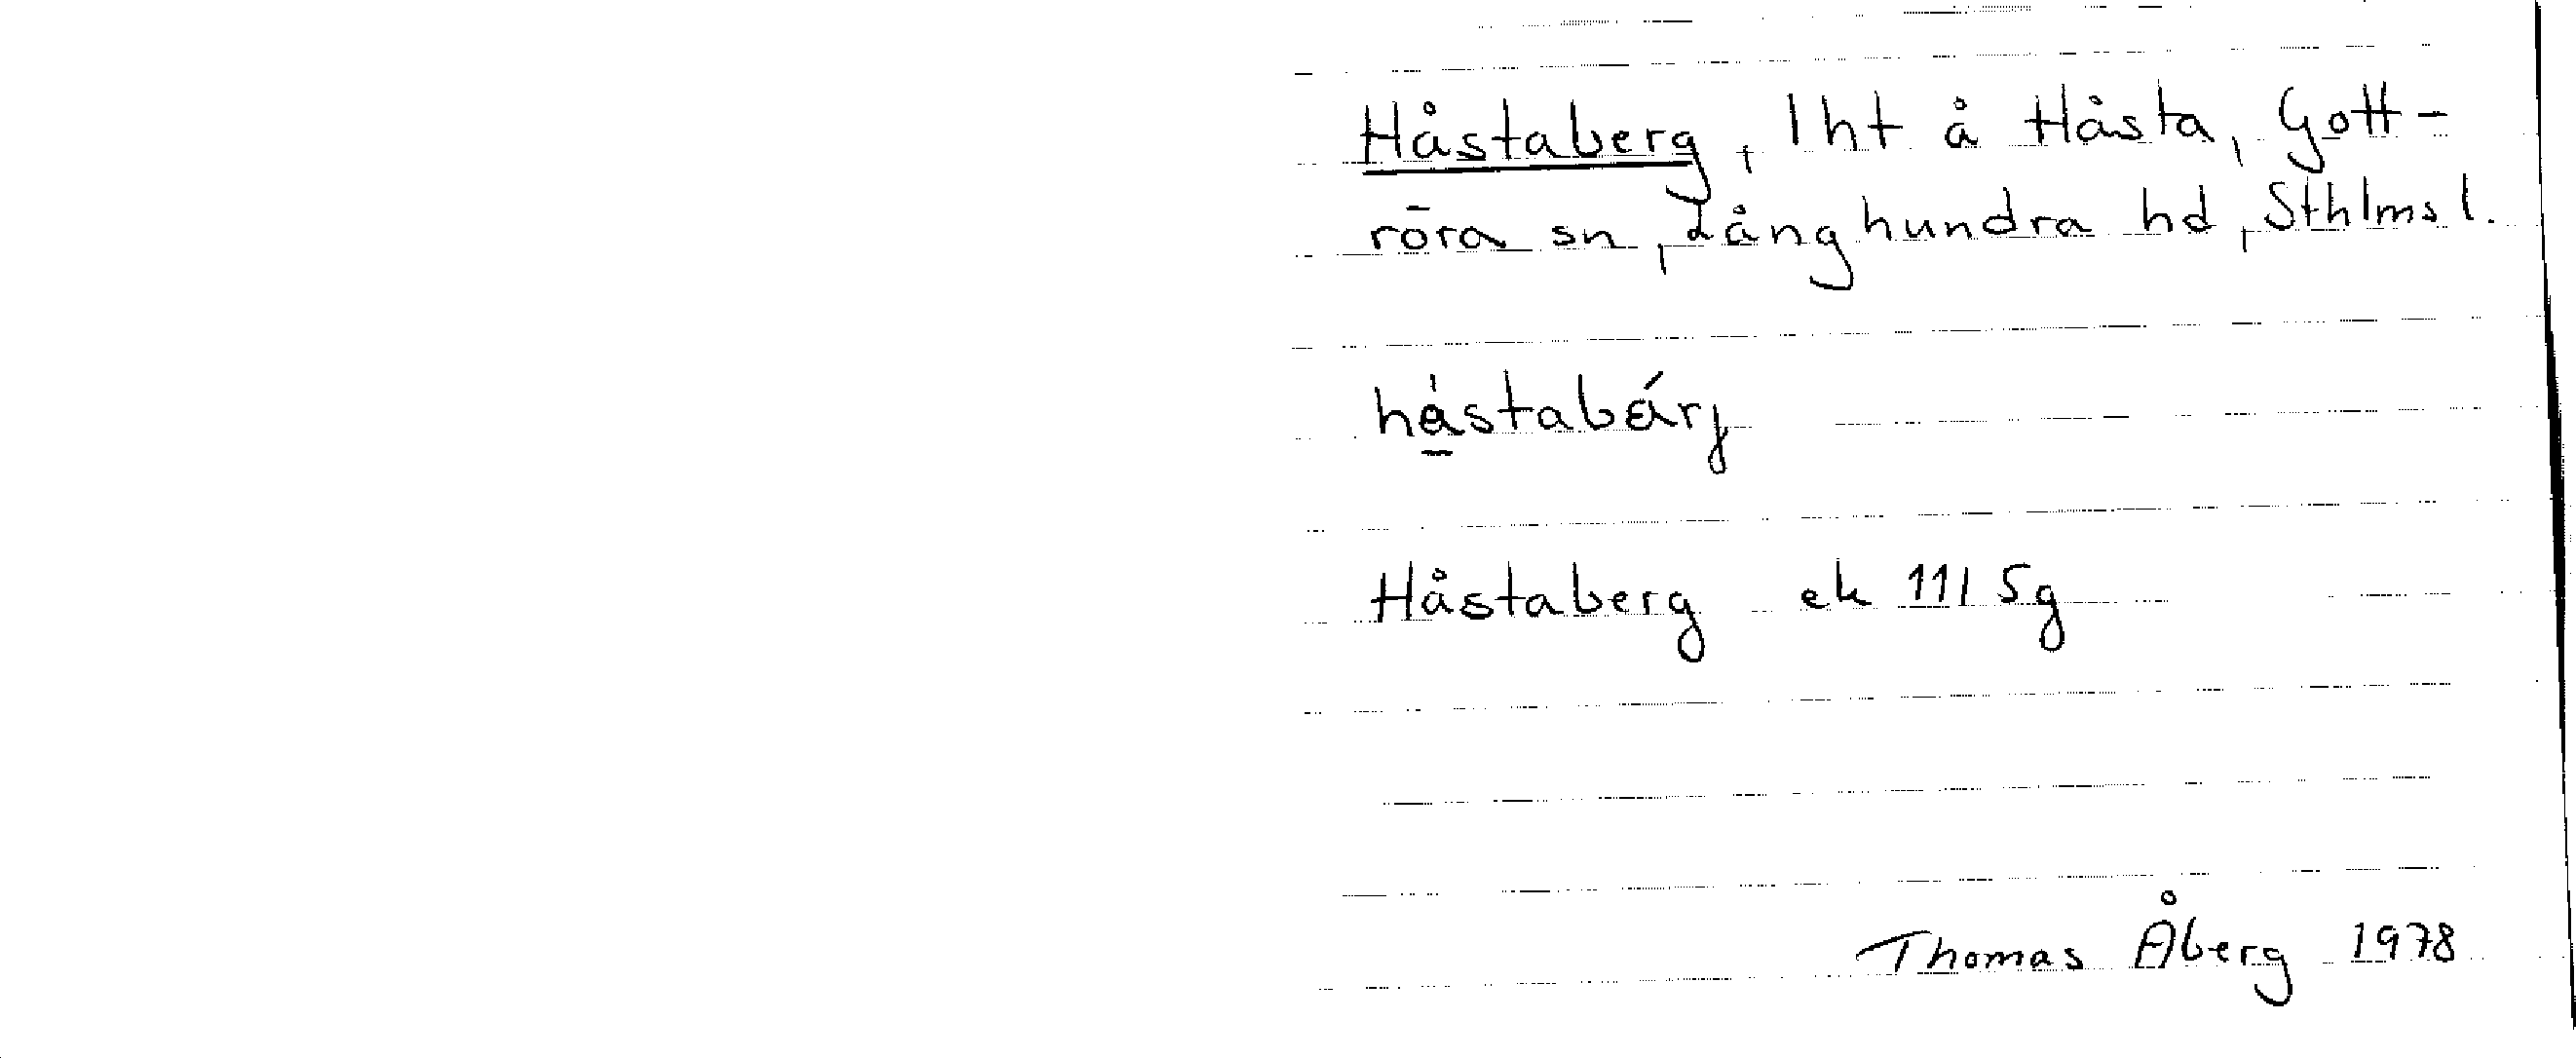 Håstaberg, lht å Håsta, Gott-
röra sn, Långhundra hd, Sthlms l.
hǻ̱stabárj
Håstaberg ek 11I 5g
Thomas Åberg 1978